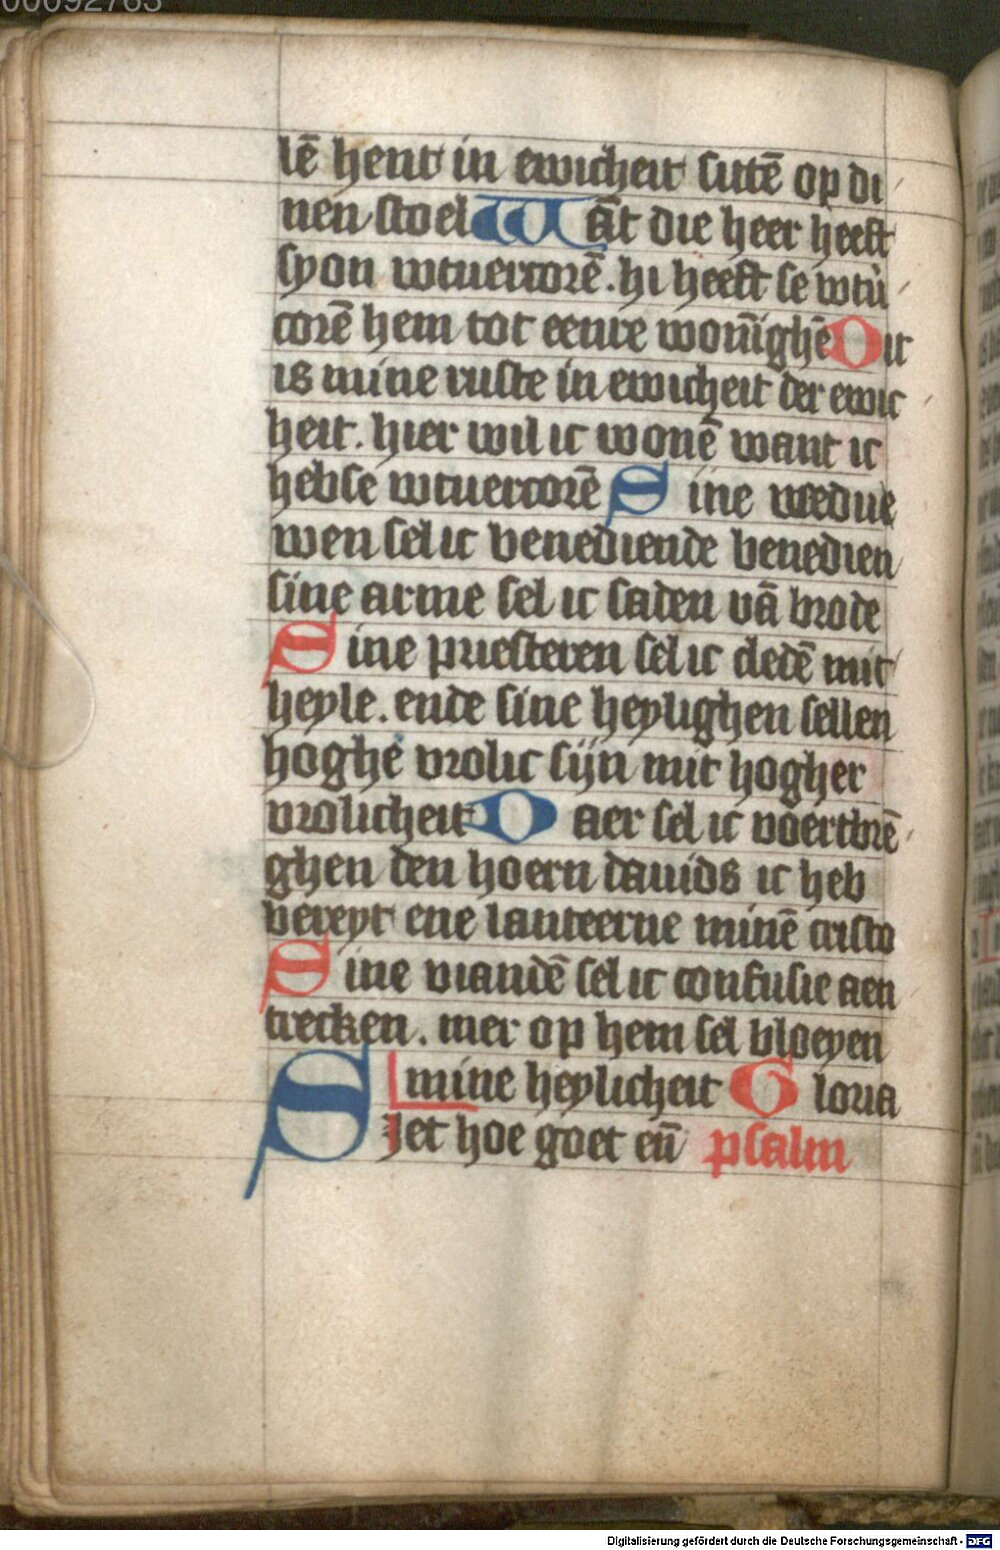 00092763
lē hent in ewicheit sittē op di
nen stoel Wāt die heer heeft
syon wtuercorē. hi heeft se wtů
corē hem tot eenre woni̅ghē Dit
is mine ruste in ewicheit der ewic
heit. hier wil ic wonē want ic
hebse wtuercorē Sine wedue
wen sel ic benediende benedien
sine arme sel ic saden vā brode
Sine priesteren sel ic cledē mit
heyle. ende sine heylighen sellen
hoghē vrolic sijn mit hogher
vrolicheit Daer sel ic voertbrē
ghen den hoern dauids ic heb
bereyt ene lanteerne minē cristo
Sine viandē sel ic confusie aen
trecken. mer op hem sel bloeyen
mine heylicheit Gloria
SJet hoe goet en̄ psalm
Digitalisierung gefördert durch die Deutsche Forschungsgemeinschaft - DFG